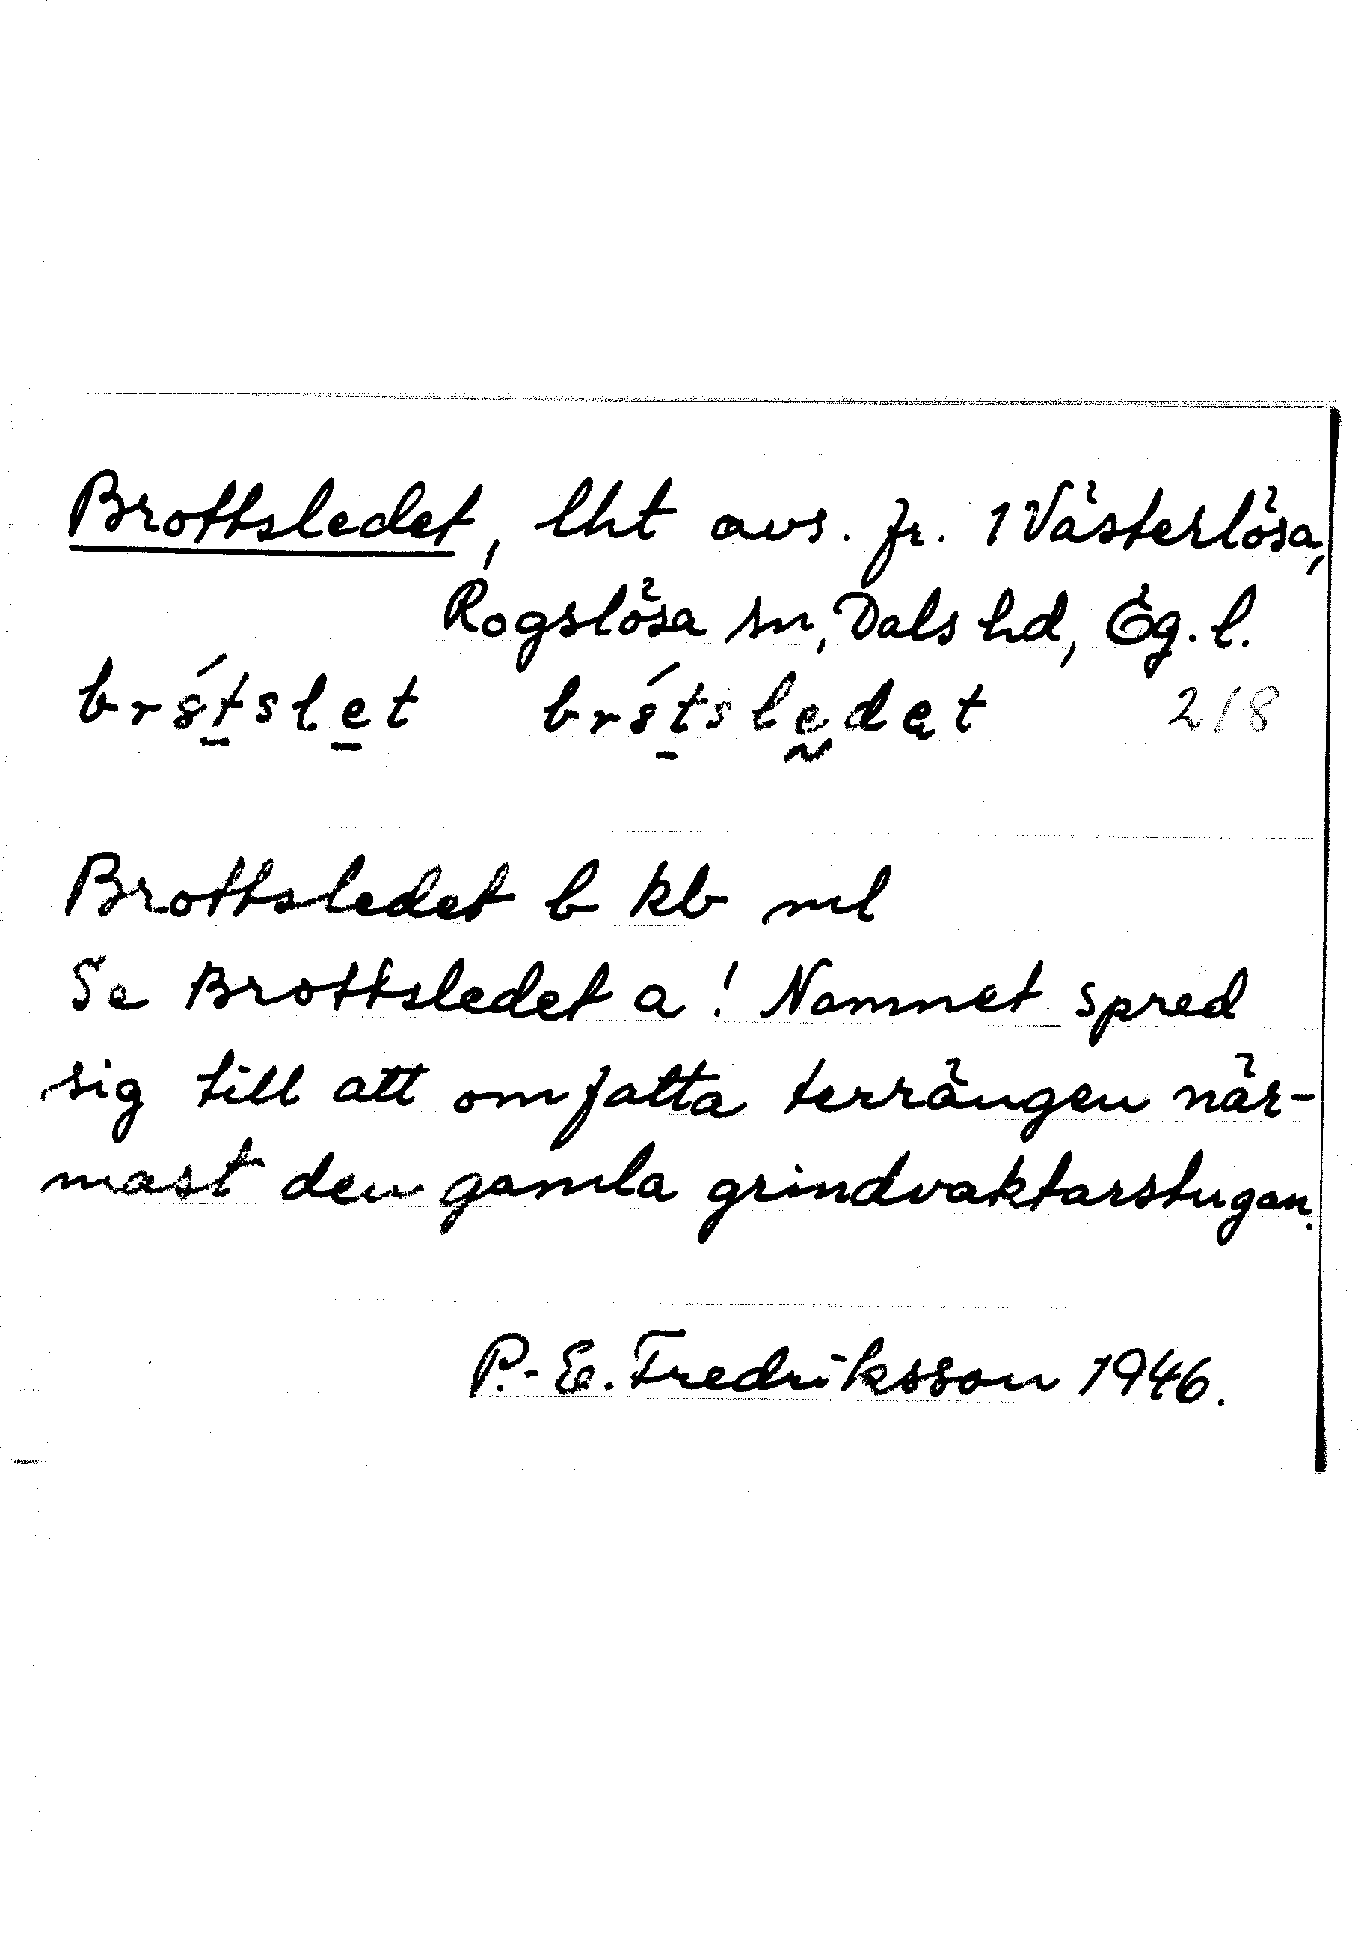 Brottsledet, lht avs. fr. 1 Västerlösa,
Rogslösa sn, Dals hd, Ög. l.
brótslet brótsledet 218
Brottsledet b kb ml
Se Brottsledet a! Namnet spred
sig till att omfatta terrängen när-
mast den gamla grindvaktarstugan.
P.-E. Fredriksson 1946.